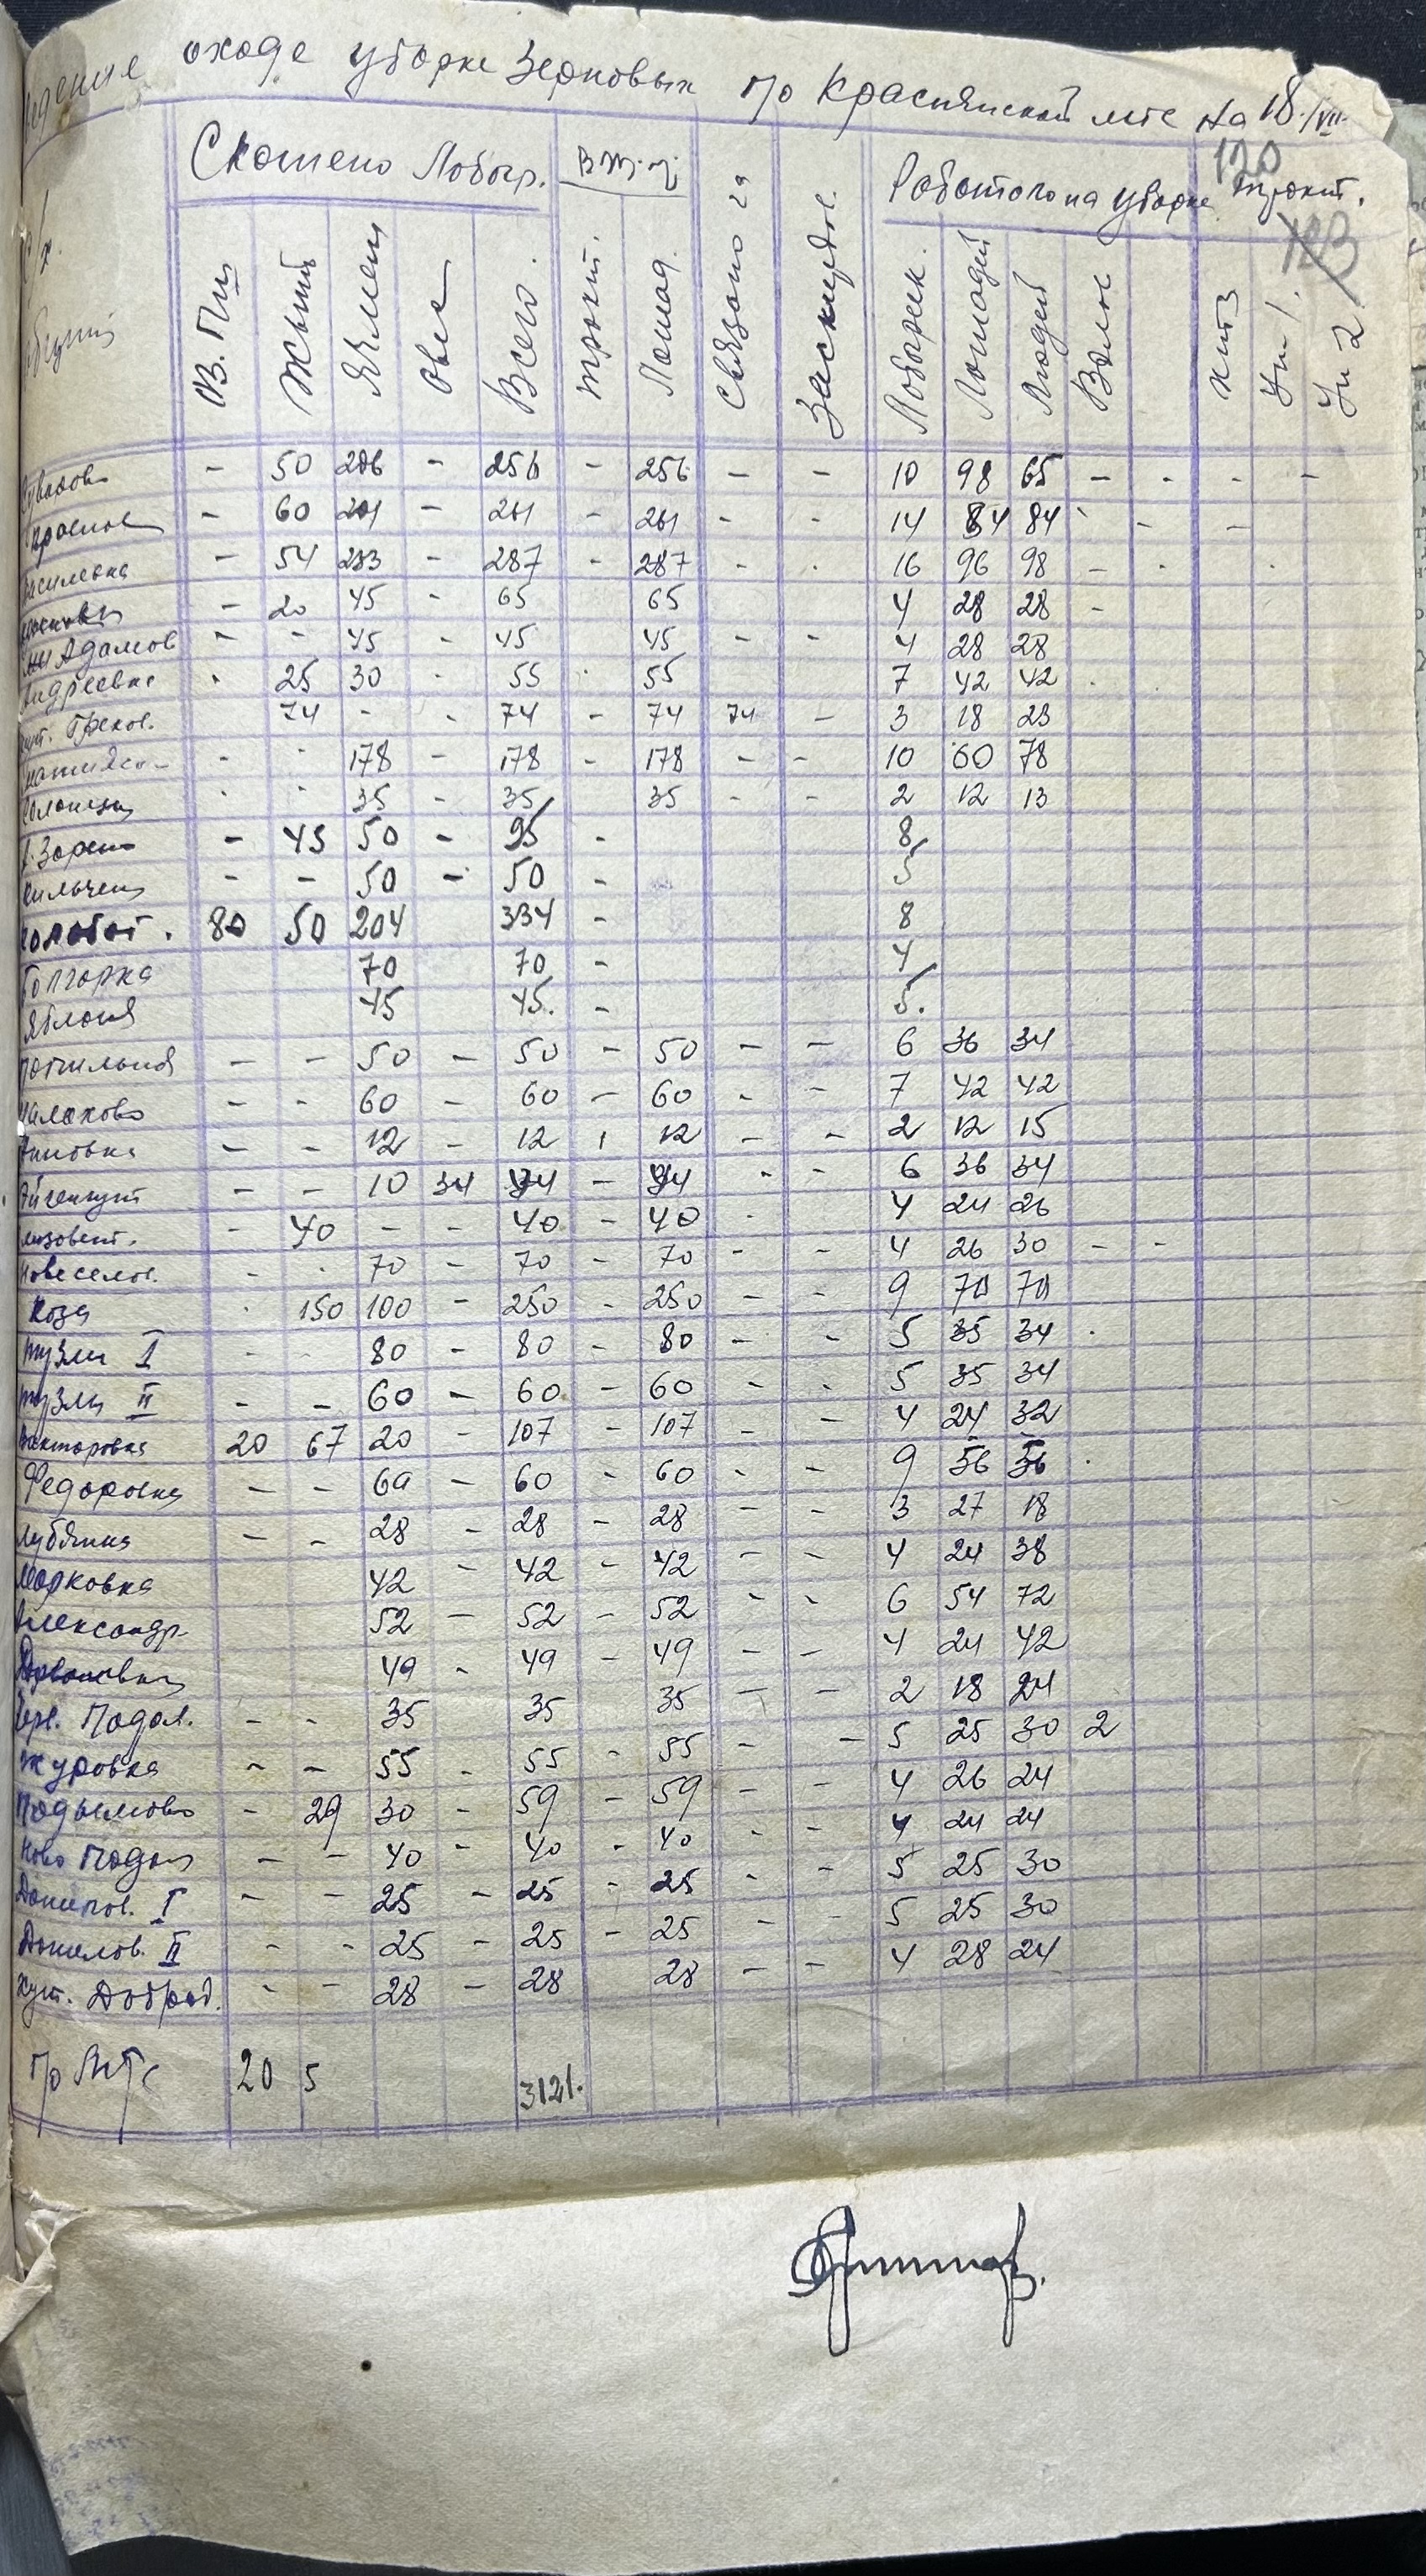 оходе уборке Зерновых по Краснянской мтс на 18/VII
120
123
Скошено Лобогр. В т.ч. Работало на уборке тракт.
В. Пш Жыто Ячмен Овес Всего. тракт. Лошад. Связано га Заскирдов. Лобогреек. Лошадей Людей Валос хтз Ун 1. Ун 2
- 50 206 - 256 - 256 - - 10 98 65 - - - -
60 201 - 261 - 261 - - 14 84 84 - -
Василевка - 54 233 - 287 - 287 - - 16 96 98 -
- 20 45 - 65 65 4 28 28 -
Адамов - - 45 - 45 45 - - 4 28 28
Андреевка - 25 30 - 55 - 55 7 42 42
хут. Греков. 74 - - 74 - 74 74 - 3 18 23
- - 178 - 178 - 178 - - 10 60 78
- - 35 - 35 35 - - 2 12 13
- 45 50 - 95 - 8
- - 50 - 50 - 5
80 50 204 334 - 8
Болгарка 70 70 - 4
Яблоня 45 45. - 5.
- - 50 - 50 - 50 - - 6 36 34
Малахово - - 60 - 60 - 60 - - 7 42 42
Анновка - - 12 - 12 - 12 - - 2 12 15
- - 10 34 44 - 44 - - 6 36 34
- 40 - - 40 - 40 - 4 24 26
Новоселов. - - 70 - 70 - 70 - - 4 26 30 - -
Коза - 150 100 - 250 - 250 - - 9 70 70
Тузлы I - - 80 - 80 - 80 - - 5 35 34
Тузлы II - - 60 - 60 - 60 - - 5 35 34
Викторовка 20 67 20 - 107 - 107 - - 4 24 32
Федоровка - - 60 - 60 - 60 - - 9 56 56
Лубянка - - 28 - 28 - 28 - - 3 27 18
Марковка 42 - 42 - 42 - - 4 24 38
Александр. 52 - 52 - 52 - - 6 54 72
49 - 49 - 49 - - 4 24 42
Подол. - - 35 35 35 - - 2 18 24
Журовка - - 55 - 55 - 55 - - 5 25 30 2
Подымово - 29 30 - 59 - 59 - - 4 26 24
Ново Подол - - 40 - 40 - 40 - - 4 24 24
Данилов. I - - 25 - 25 - 25 - - 5 25 30
Данилов. II - - 25 - 25 - 25 - - 5 25 30
хут. Добрад. - - 28 - 28 28 - - 4 28 24
по МТС 20 5 3121.